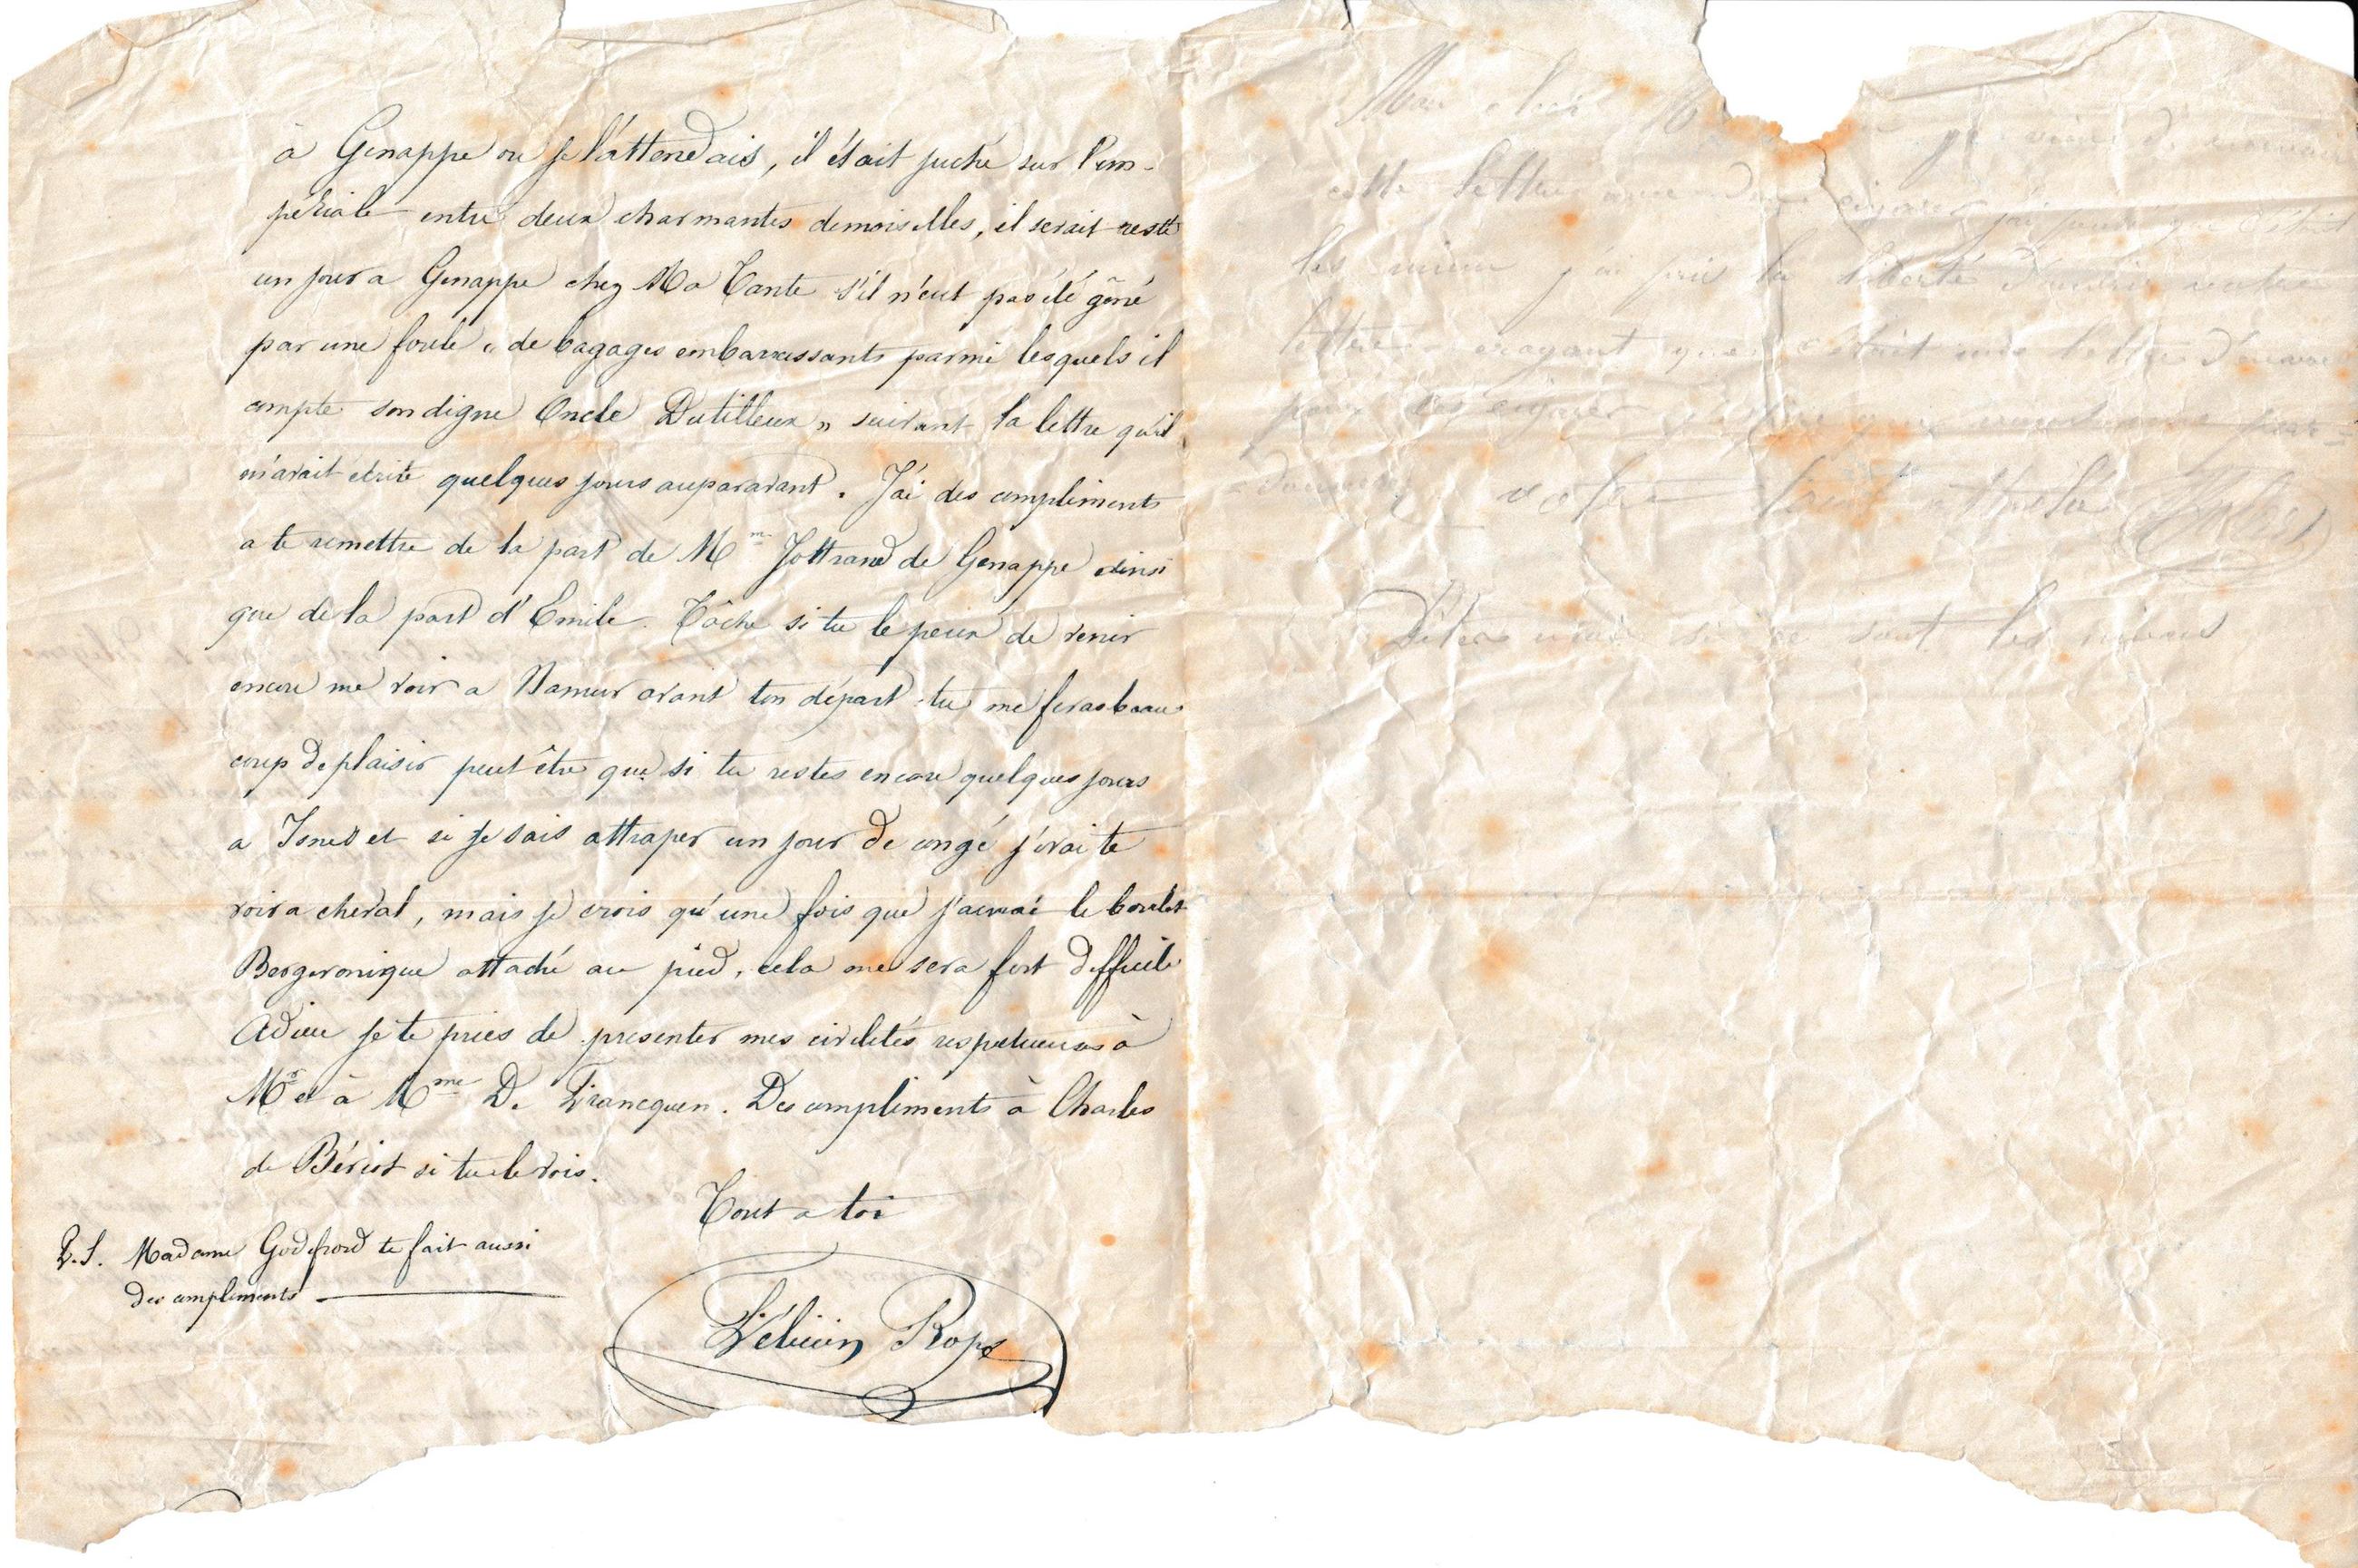 à Genappe ou je l'attendais, il était juché sur l'im-
périale entre deux charmantes demoiselles, il serait resté
un jour a Genappe chez Ma Tante s'il n'eut pas été gêné
par une foule „ de bagages embarrassants parmi lesquels il
compte son digne Oncle Dutilleux „ suivant la lettre qu'il
m'avait écrite quelques jours auparavant. J'ai des compliments
a te remettre de la part de Mm Jottrand de Genappe ainsi
que de la part d'Emile. Tâche si tu le peux de venir
encore me voir a Namur avant ton départ tu me feras beau
coup de plaisir peut être que si tu restes encore quelques jours
a Isnes et si je sais attraper un jour de congé j'irai te
voir a cheval, mais je crois qu'une fois que j'aurai le boulet
Bergeronique attaché au pied, cela me sera fort difficile
Adieu je te pries de presenter mes civilités respectueuses à
Mr et à Mme De Francquen. Des compliments à Charles
de Bériot si tu le vois.
Tout a toi
P.S. Madame Godefroid te fait aussi
des compliments
Félicien Rops
Mon cher
je viens de
cette lettre
les miens j'ai pris la liberté d'ouvrir votre
lettre croyant que c'était une lettre
pour
votre
Dites moi si ce sont les miens